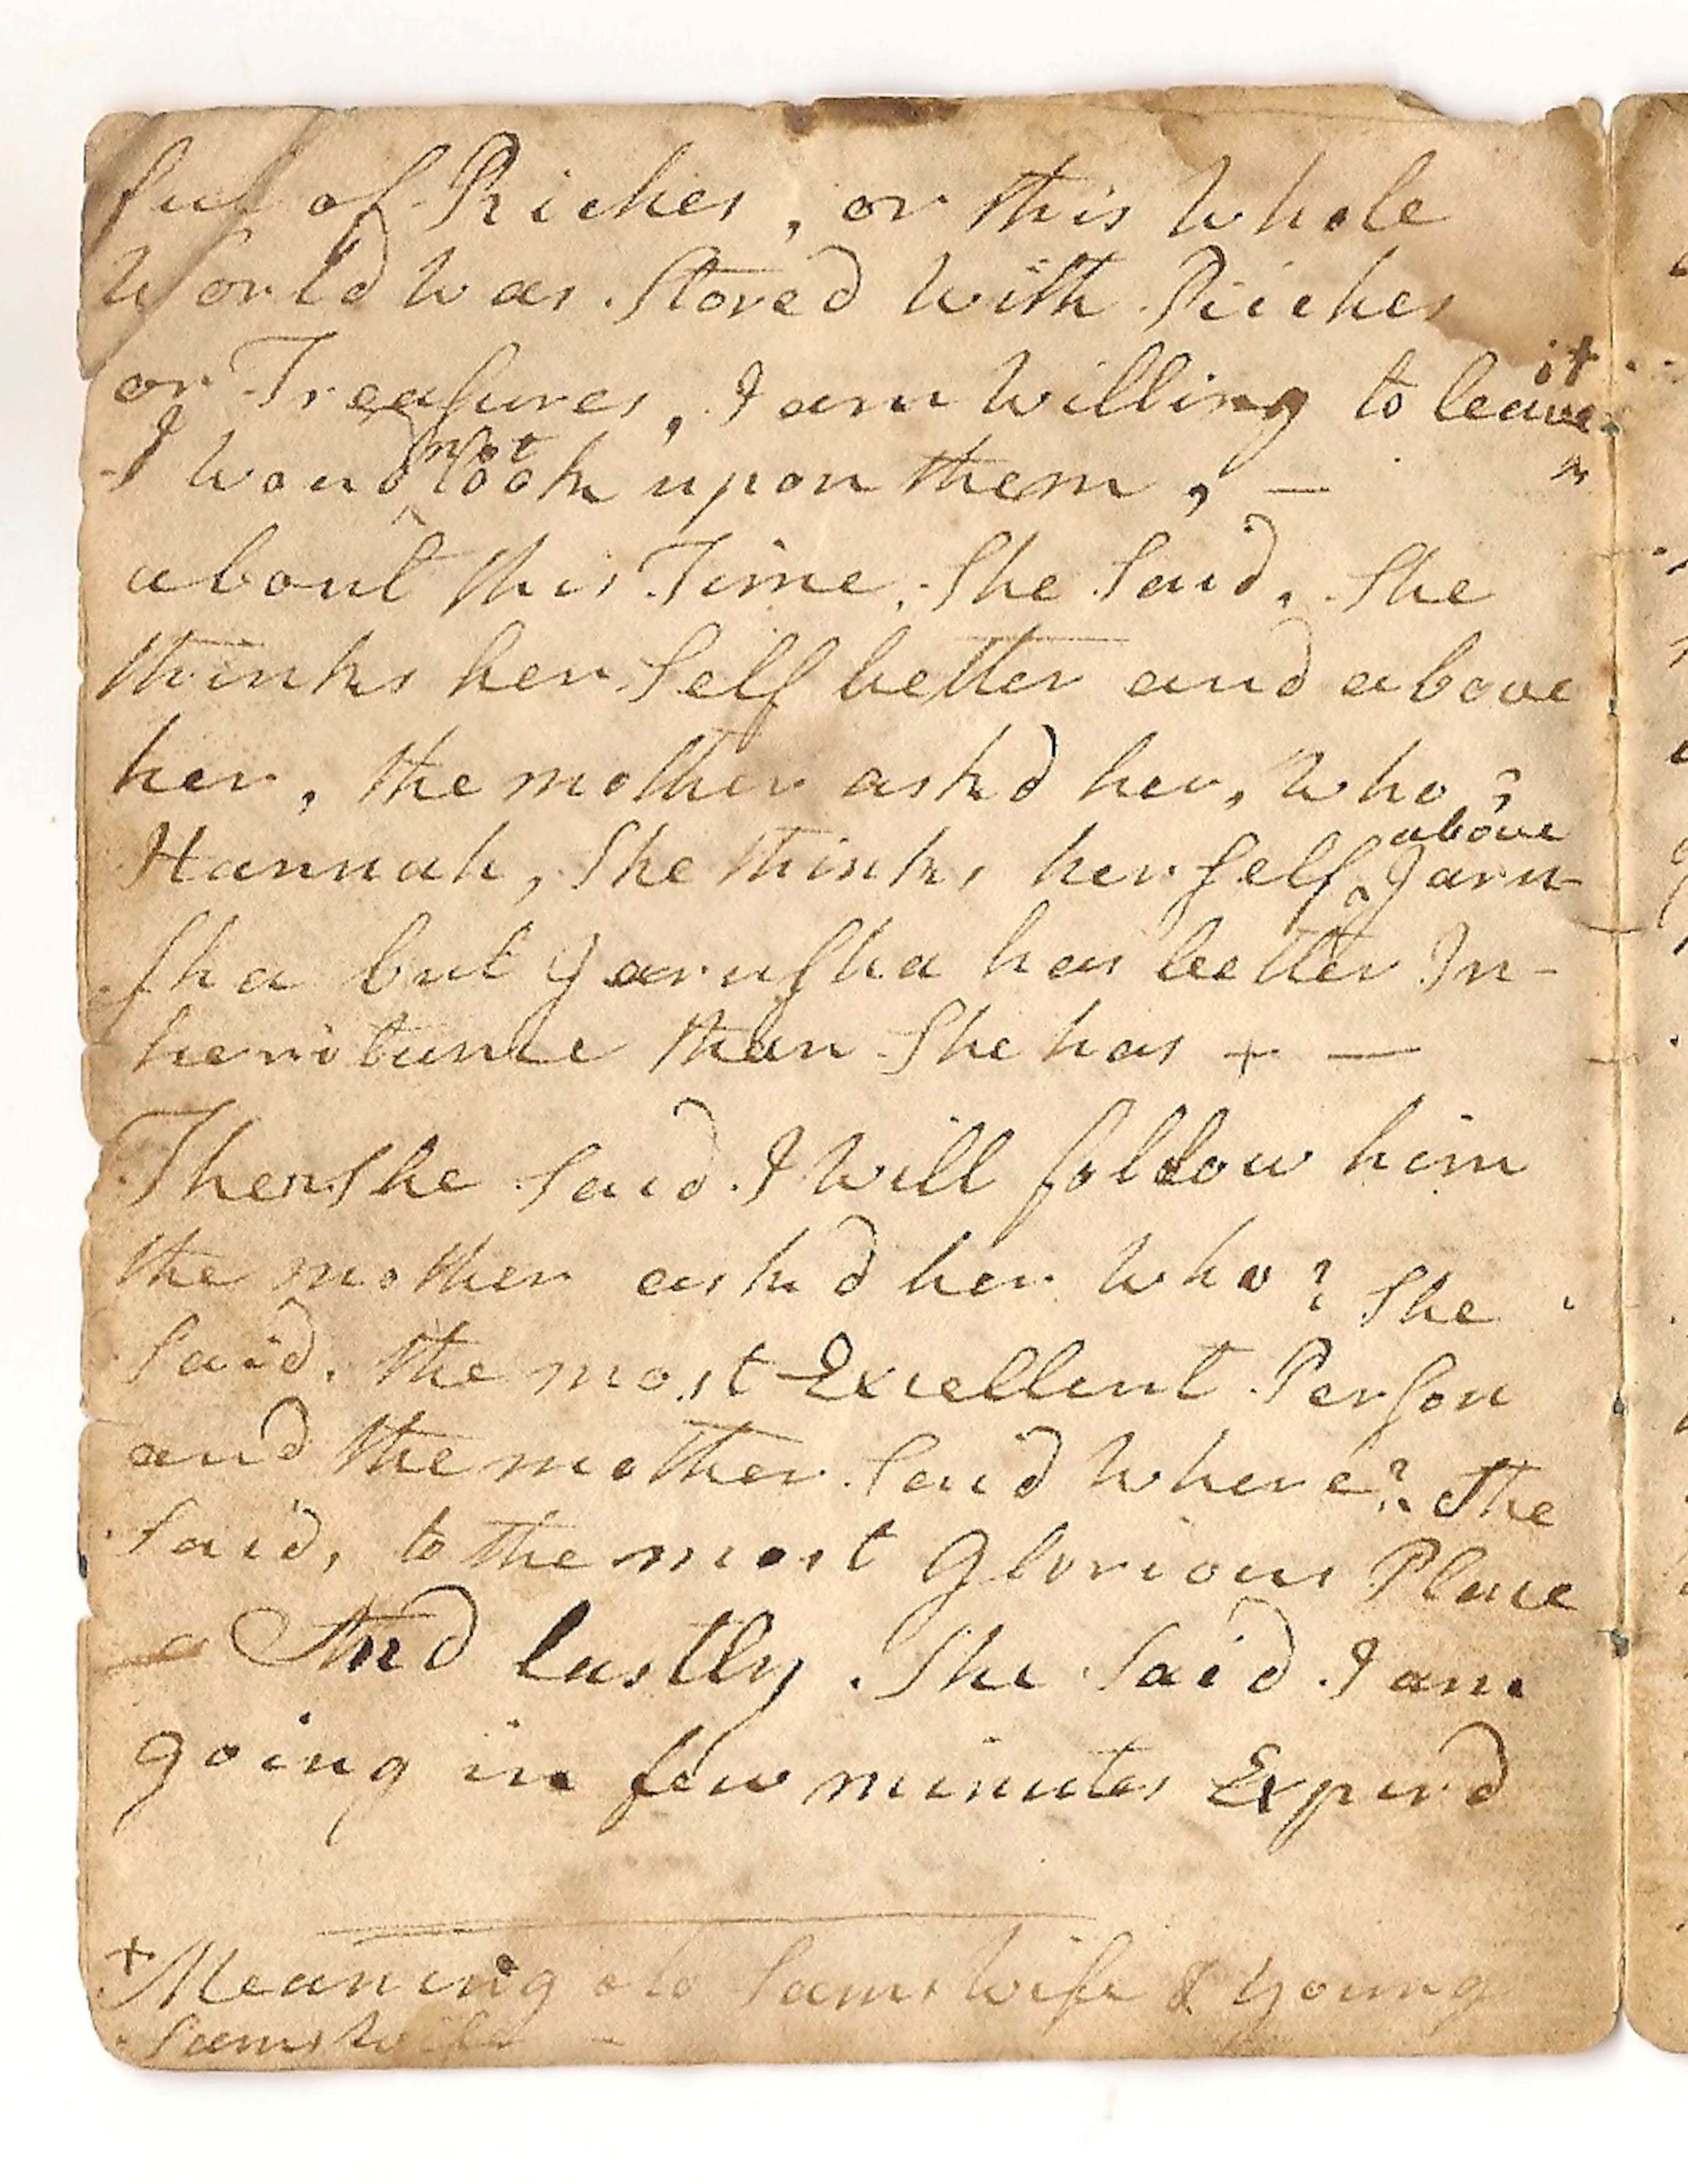 full of Riches, or this Whole
World was Stored With Riches
or Treasures, I am Willing to leave it
I Woud not look upon them, —
about this Time. She Said. She
thinks her Self better and above
her, the mother ask'd her, Who?
Hannah, She thinks her self above Jaru-
sha but Jarusha has better In-
heritance than She has + —
Then She Said. I Will follow him
the mother ask'd her Who? She
Said. the most Excellent Person
and the mother Said Where? She
Said, to the most Glorious Place
— And lastly. She Said. I am
going in few minutes Expird
+ Meaning old Sams Wife & Young
Sams Wife —